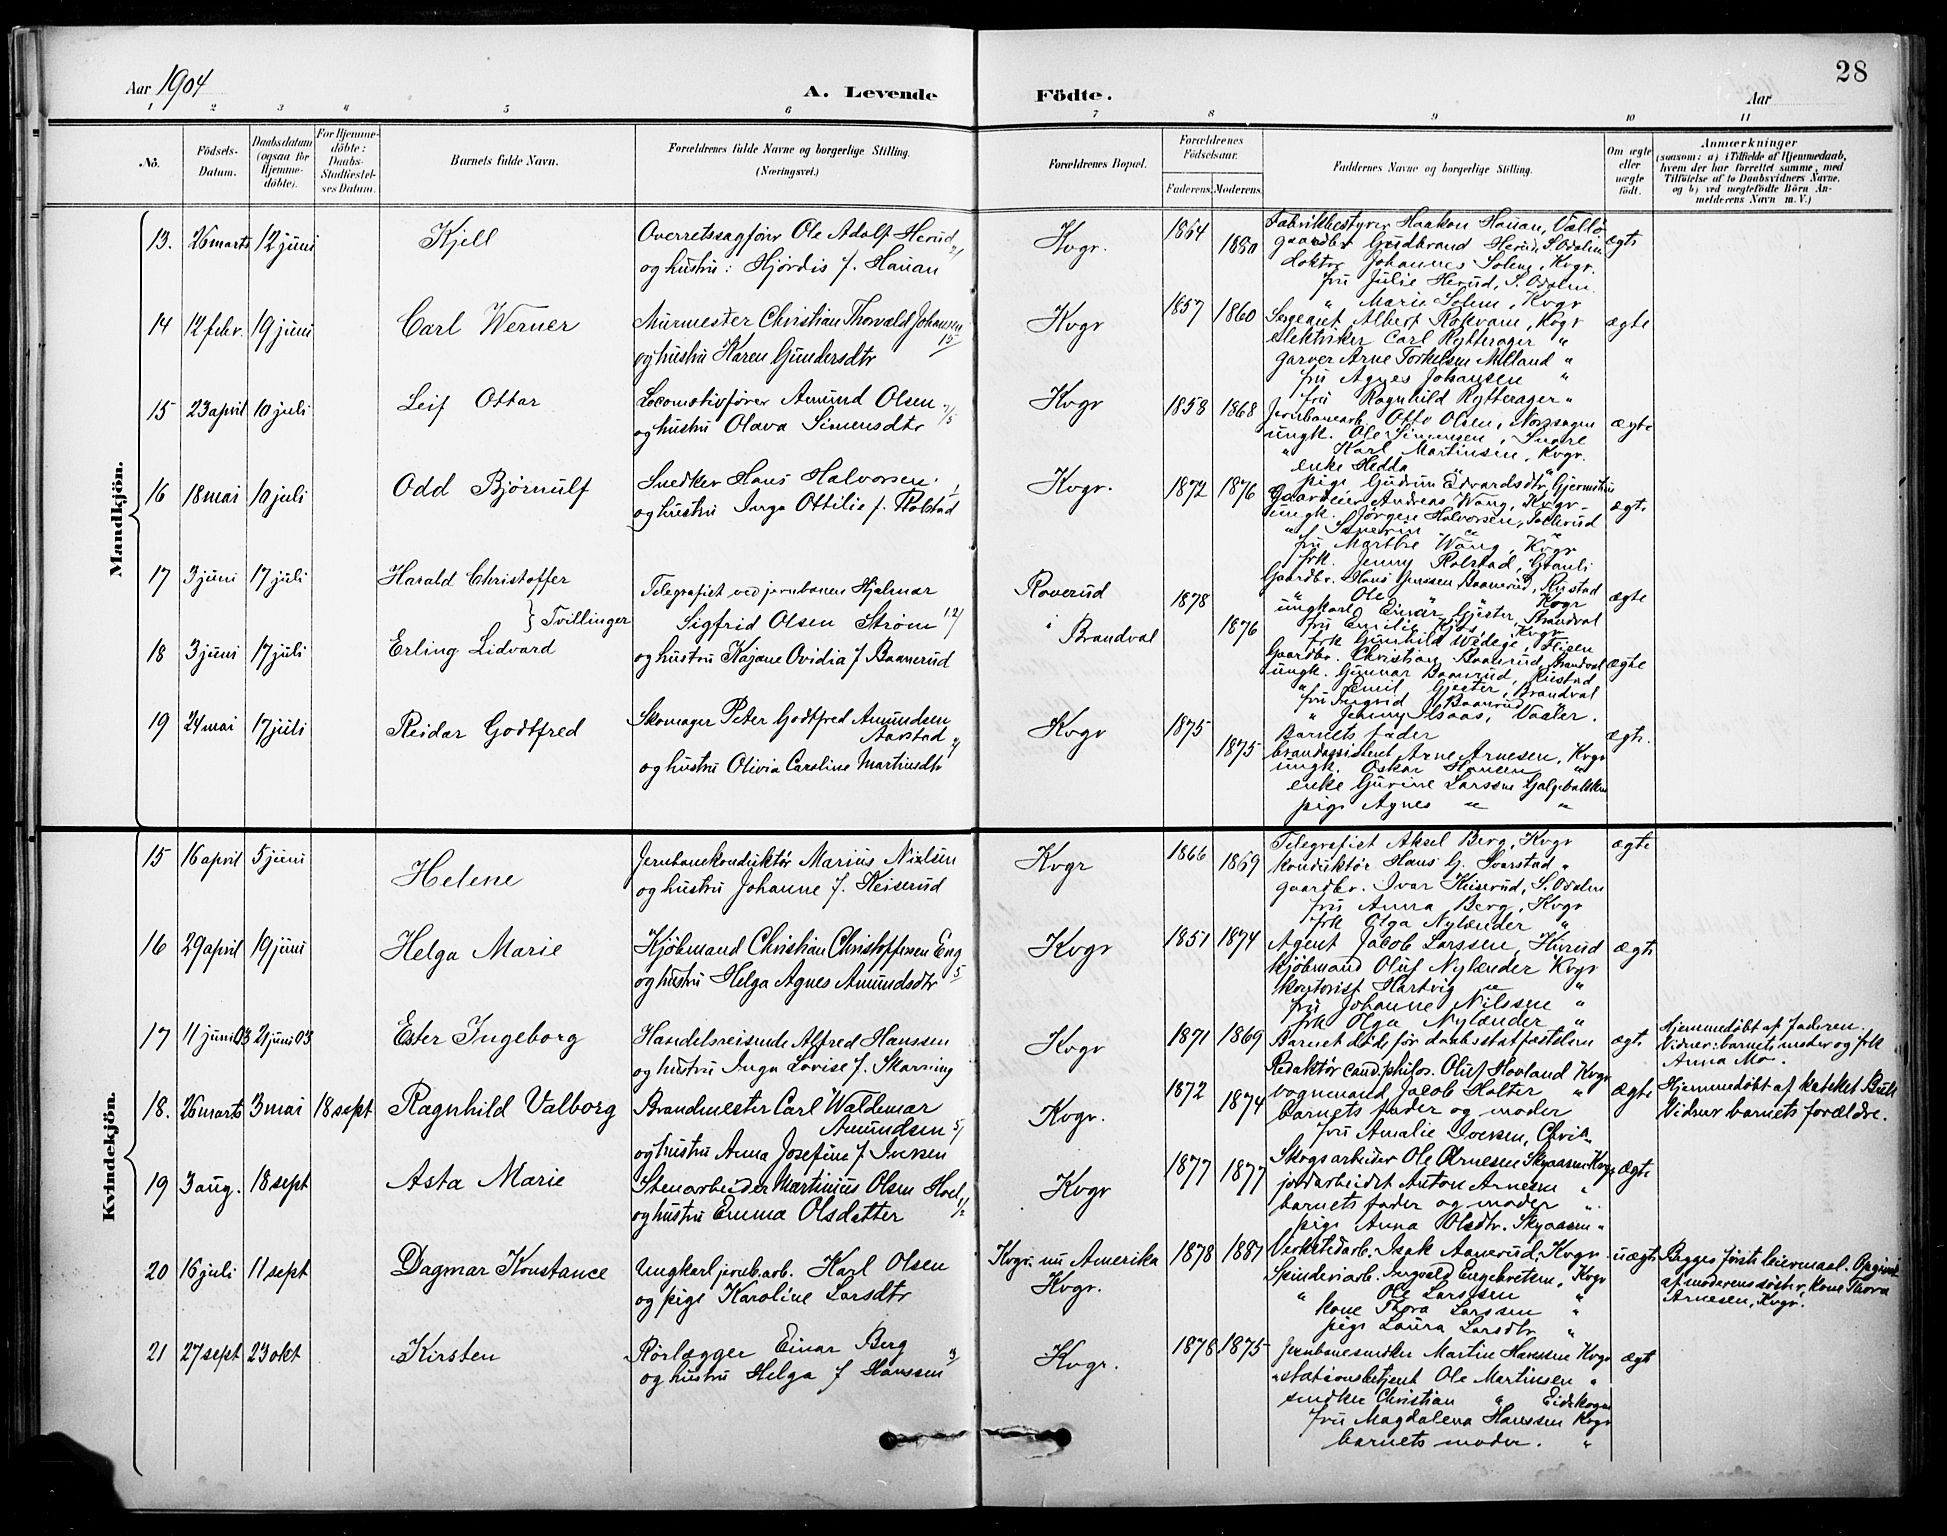 28
Aar 1904
A. Levende
Födte.
Aar
1 2 3 4 5 6 7 8 9 10 11
No.
Födsels-
Datum.
Daabsdatum
(ogsaa for
Hjemme-
döbte).
For Hjemme-
döbte:
Daabs-
Stadfæstel-
ses Datum.
Barnets fulde Navn.
Forældrenes fulde Navne og borgerlige Stilling.
(Næringsvei.)
Forældrenes Bopæl.
Forældrenes
Födselsaar.
Faderens. Moderens.
Faddernes Navne og borgerlige Stilling.
Om ægte
eller
uægte
födt.
Anmærkninger
(saasom: a) i Tilfælde af Hjemmedaab,
hvem der har forrettet samme, med
Tilföielse af to Daabsvidners Navne,
og b) ved uægtefödte Börn An-
melderens Navn m. V.)
Mandkjön.
13. 26 marts 12 juni Kjell
Overretssagfører Ole Adolf Herud
og hustru: Hjørdis f. Hauan
Kvgr. 1864 ægte
Fabrikbestyrer Haakon Hauan, Vallø
gaardbr Gudbrand Herud, S. Odalen
doktor Johannes Solem, Kvgr.
fru Julie Herud, S. Odalen
" Marie Solem, Kvgr
14 12 febr. 19 juni Carl Werner
Murmester Christian Thorvald Johansen
15
og hustru Karen Gundersdtr
Kvgr 1857 1860 ægte
Sergeant Albert Rokvam, Kvgr
elektriker Carl Rytterager "
garver Arne Torkelsen Melland "
fru Agnes Johansen "
fru Ragnhild Rytterager "
15 23 april 10 juli Leif Ottar
Locomotivfører Amund Olsen
og hustru Olava Simensdtr
Kvgr 1858 1868 ægte
Jernbanearb. Otto Olsen, Norsagen
ungk. Ole Simensen,
" Karl Martinsen, Kvgr.
enke Hedda "
pige Gudrun Edvardsdtr,
16 18 mai 10 juli Odd Bjørnulf
Snedker Hans Halvorsen
og hustru Inga Ottilie f. Rolstad
Kvgr. 1872 1876 ægte
Gaardeier Andreas Wang, Kvgr
ungk. Jørgen Halvorsen,
" Severin "
fru Marthe Wang, Kvgr
frk. Jenny Rolstad, Granli
17 3 juni 17 juli Harald Christoffer
} Tvillinger
Telegrafist ved jernbanen Hjalmar
Sigfrid Olsen Strøm 12/
Roverud
" Brandval
1878 1876 ægte
Gaardbr. Hans Jenssen Baanerud, Riistad
" Ole " Kvgr
ungkarl Einar Gjester, Brandval
fru Emilie Kjos, Kvgr
frk Gunhild Wedege,
18 3 juni 17 juli Erling Lidvard
og hustru Kajane Ovidia f Baanerud
ægte
Gaardbr. Christian Baanrud, Brandval
ungk. Gunnar Baanrud, Riistad
" Emil Gjester, Brandval
fru Ingrid Baanrud "
" Jenny Ilsaas, Vaaler.
19 24 mai 17 juli Reidar Godtfred
Skomager Peter Godtfred Amundsen
Aarstad
og hustru Olivia Caroline Martinsdtr
Kvgr 1875 1875 ægte
Barnets fader
brandassistent Arne Arnesen, Kvgr
ungk. Oskar Hansen "
enke Gurine Larssen Galgebakken
pige Agnes " "
Kvindekjön.
15 16 april 5 juni Helene
Jernbanekonduktør Marius Nielsen
og hustru Johanne f. Keiserud
Kvgr 1866 1869 ægte
Telegrafist Aksel Berg, Kvgr
konduktør Hans G. Svarstad "
gaardbr. Ivar Keiserud, S. Odalen
fru Anna Berg, Kvgr
frk Olga Nylænder "
16 29 april 19 juni Helga Marie
Kjøbmand Christian Christoffersen Eng
5
og hustru Helga Agnes Amundsdtr
Kvgr 1857 1874 ægte
Agent Jacob Larssen, Hverud
kjøbmand Oluf Nylænder Kvgr
kontorist Hartvig " "
fru Johanne Nilssen "
frk Olga Nylænder "
17 11 juni 03 21 juni 03 Ester Ingeborg
Handelsreisende Alfred Hanssen
og hustru Inga Lovise f. Skarning
Kvgr 1871 1869 ægte
Barnet døde før daabsstadfæstelsen
Hjemmedøbt af faderen.
Vidner: barnets moder og frk
Anna Mo.
18. 26 marts 3 mai 18 sept Ragnhild Valborg
Brandmester Carl Waldemar
Amundsen 5/
og hustru Anna Josefine f. Iversen
Kvgr. 1872 1874 ægte
Redaktør cand. philos. Oluf Hovland Kvgr
vognmand Jacob Holter "
barnets fader og moder
fru Amalie Iversen,
Hjemmedøbt af kateket Bull
Vidner barnets forældre.
19 3 aug. 18 sept Asta Marie
Stenarbeider Martinius Olsen Hoel
og hustru Emma Olsdatter
Kvgr 1877 1877 ægte
Skogsarbeider Ole Arnesen Skyaasen Kvgr
jordarbeider Anton Arnesen "
barnets fader og moder "
pige Anna Olsdtr. Skyaasen "
20 16 juli 11 sept Dagmar Konstance
Ungkarl jernb.arb. Karl Olsen
og pige Karoline Larsdtr
Kvgr. nu Amerika
Kvgr.
1878 1881 uægte
Verkstedarb. Isak Aanerud, Kvgr
Spinderiarb. Ingvald Engebretsen, Kvgr
" Ole Larssen "
kone Thora Larssen "
pige Laura Larsdtr "
Begges første leiermaal. Opgivet
af moderens søster, kone Thora
Arnesen, Kvgr.
21 27 sept 23 okt Kirsten
Rørlægger Einar Berg
og hustru Helga f Hanssen
Kvgr. 1878 1875 ægte
Jernbanesnedker Martin Hanssen Kvgr
stationsbetjent Ole Martinsen "
snedker Christian " Eidskogen
fru Magdalena Hanssen Kvgr
barnets moder. "